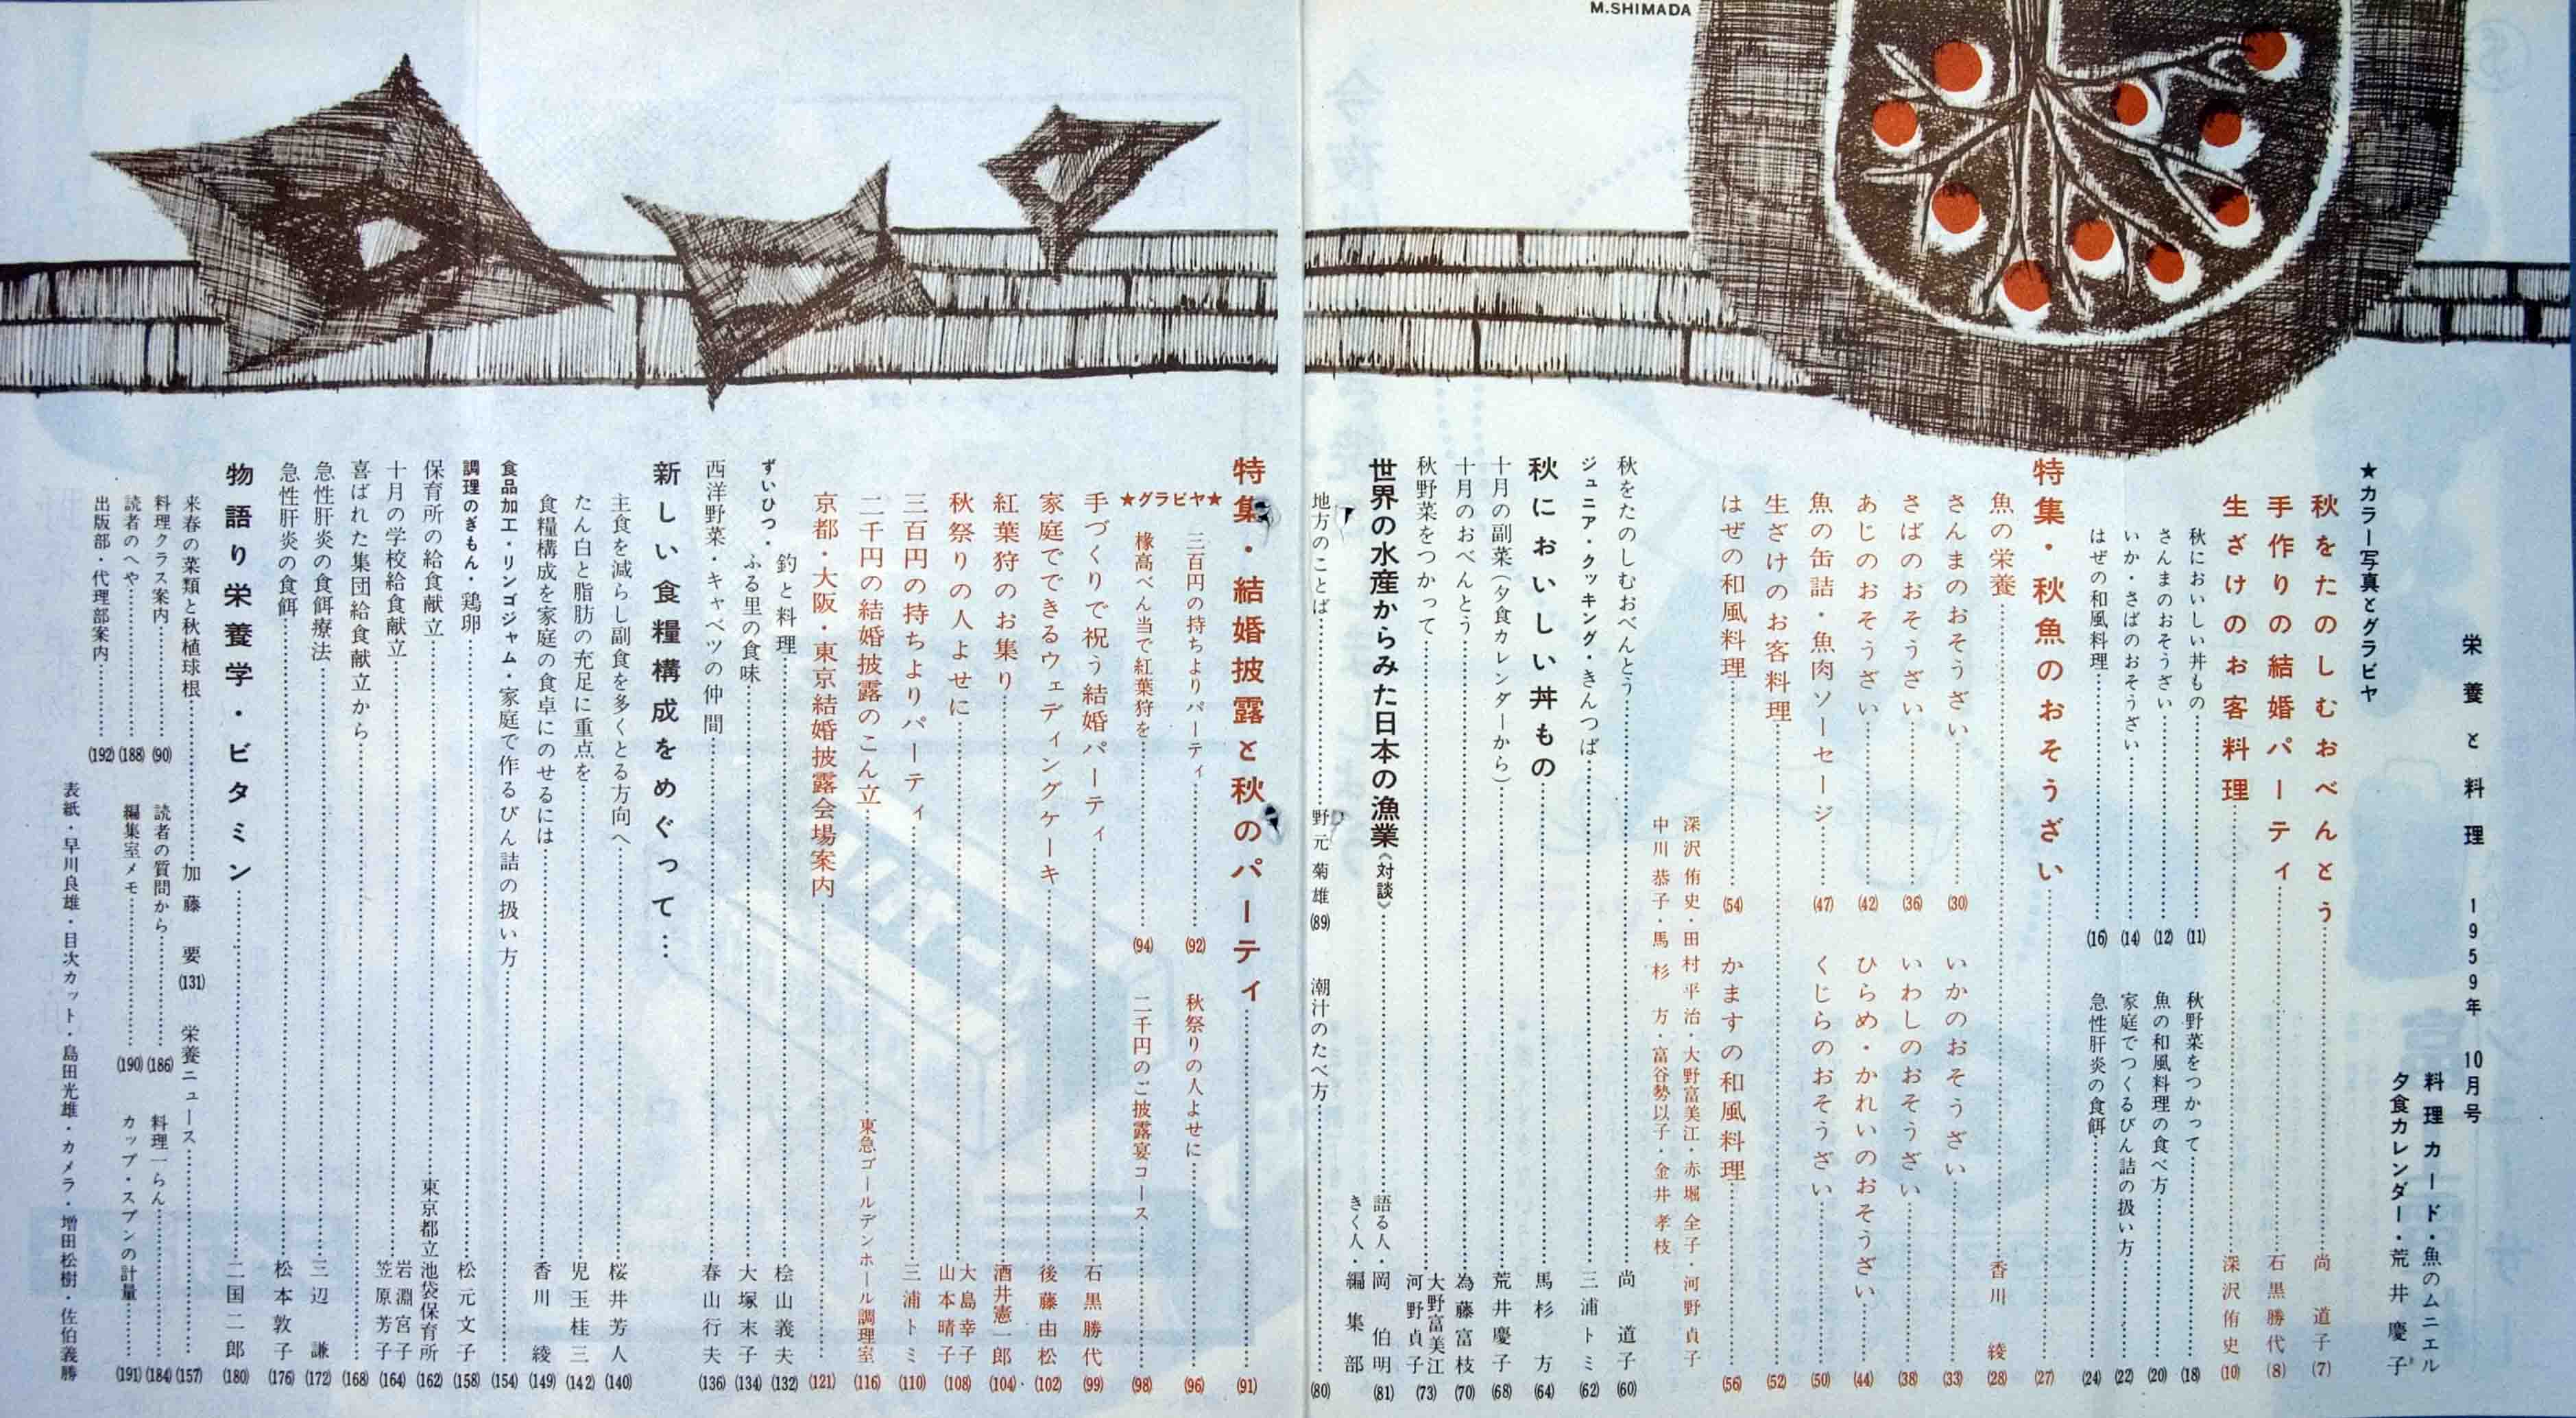 M.SHIMADA
栄養と料理　1959年　10月号
料理カード・魚のムニエル
夕食カレンダー・荒井慶子
★カラー写真とグラビヤ
秋をたのしむおべんとう……尚　道子(7)
手作りの結婚パーティ……石黒勝代(8)
生ざけのお客料理……深沢侑史(10)
秋においしい丼もの……(11)
秋野菜をつかって……(18)
さんまのおそうざい……(12)
魚の和風料理の食べ方……(20)
いか・さばのおそうざい……(14)
家庭でつくるびん詰の扱い方……(22)
はぜの和風料理……(16)
急性肝炎の食餌……(24)
特集・秋魚のおそうざい……(27)
魚の栄養……香川　綾(28)
さんまのおそうざい……(30)
いかのおそうざい……(33)
さばのおそうざい……(36)
いわしのおそうざい……(38)
あじのおそうざい……(42)
ひらめ・かれいのおそうざい……(44)
魚の缶詰・魚肉ソーセージ……(47)
くじらのおそうざい……(50)
生ざけのお客料理……(52)
はぜの和風料理……(54)
かますの和風料理……(56)
深沢侑史・田村平治・大野富美江・赤堀全子・河野貞子
中川恭子・馬杉　方・富谷勢以子・金井孝枝
秋をたのしむおべんとう……尚　道子(60)
ジュニア・クッキング・きんつば……三浦トミ(62)
秋においしい丼もの……馬杉　方(64)
十月の副菜(夕食カレンダーから)……荒井慶子(68)
十月のおべんとう……為藤富枝(70)
秋野菜をつかって……大野富美江　河野貞子(73)
世界の水産からみた日本の漁業《対談》……語る人・岡　伯明(81)
きく人・編集部
地方のことば……野元菊雄(89)
潮汁のたべ方……(80)
特集・結婚披露と秋のパーティ……(91)
★グラビヤ★
三百円の持ちよりパーティ……(92)
秋祭りの人よせに……(96)
椽高べん当で紅葉狩を……(94)
二千円のご披露宴コース……(98)
手づくりで祝う結婚パーティ……石黒勝代(99)
家庭でできるウェディングケーキ……後藤由松(102)
紅葉狩のお集り……酒井憲一郎(104)
秋祭りの人よせに……大島幸子　山本晴子(108)
三百円の持ちよりパーティ……三浦トミ(110)
二千円の結婚披露のこん立……東急ゴールデンホール調理室(116)
京都・大阪・東京結婚披露会場案内……(121)
ずいひつ・釣と料理……桧山義夫(132)
ふる里の食味……大塚末子(134)
西洋野菜・キャベツの仲間……春山行夫(136)
新しい食糧構成をめぐって…
主食を減らし副食を多くとる方向へ……桜井芳人(140)
たん白と脂肪の充足に重点を……児玉桂三(142)
食糧構成を家庭の食卓にのせるには……香川　綾(149)
食品加工・リンゴジャム・家庭で作るびん詰の扱い方……(154)
調理のぎもん・鶏卵……松元文子(158)
保育所の給食献立……東京都立池袋保育所(162)
十月の学校給食献立……岩淵宮子　笠原芳子(164)
喜ばれた集団給食献立から……(168)
急性肝炎の食餌療法……三辺　謙(172)
急性肝炎の食餌……松本敦子(176)
物語り栄養学・ビタミン……二国二郎(180)
来春の菜類と秋植球根……加藤　要(131)
栄養ニュース……(157)
料理クラス案内……(90)
読者の質問から……(186)
料理一らん……(184)
読者のへや……(188)
編集室メモ……(190)
カップ・スプンの計量……(191)
出版部・代理部案内……(192)
表紙・早川良雄・目次カット・島田光雄・カメラ・増田松樹・佐伯義勝